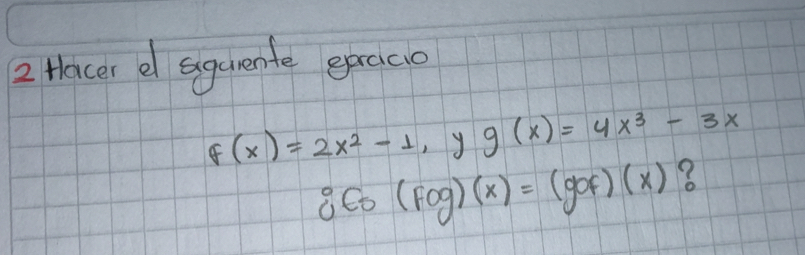 2 Hacer el siguiente ejercicio
f(x) = 2x² - 1, y g(x) = 4x³ - 3x
¿Es (fog)(x) = (gof)(x)?